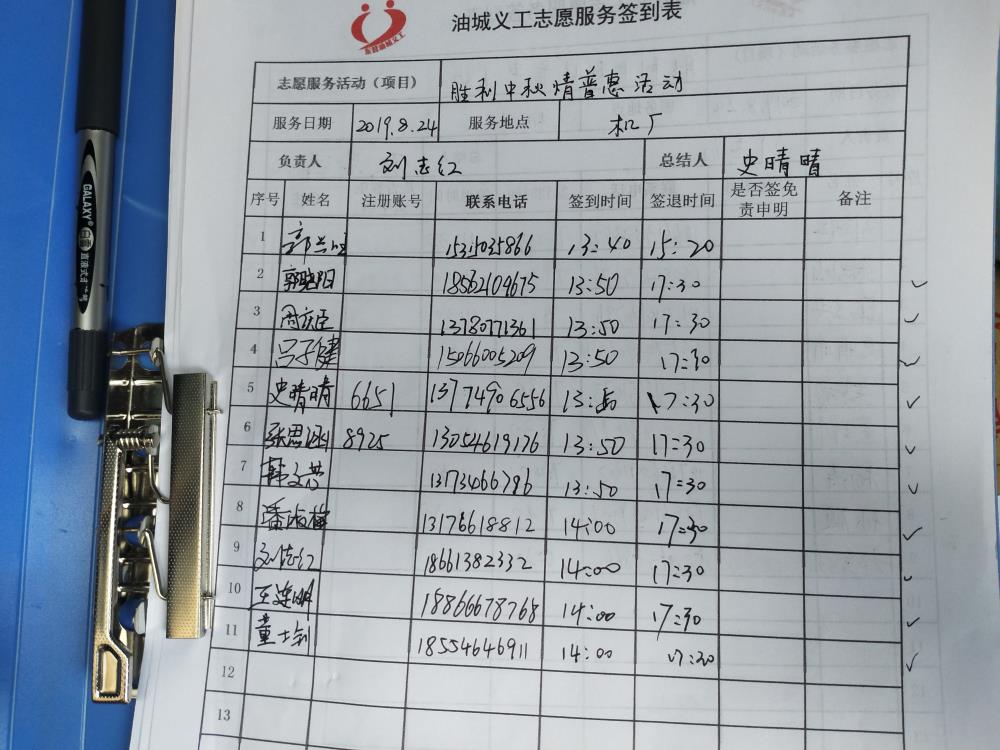 油城义工志愿服务签到表
志愿服务活动（项目） 胜利中秋情普惠活动
服务日期 2019.8.24 服务地点 机厂
负责人 刘志红 总结人 史晴晴
序号 姓名 注册账号 联系电话 签到时间 签退时间 是否签免责申明 备注
1 13:40 15:20
2 郭晓阳 18562104675 13:50 17:30
3 周庆臣 13780771361 13:50 17:30
4 吕子健 15066005209 13:50 17:30
5 史晴晴 6651 13774906556 17:30
6 张思涵 8925 13054619176 13:50 17:30
7 韩文芸 13173466786 13:50 17:30
8 潘淑梅 13176618812 14:00 17:30
9 刘志红 18661382332 14:00 17:30
10 王连明 18866678768 14:00 17:30
11 董士钊 18554646911 14:00 17:30
12
13
GALAXY 直液式